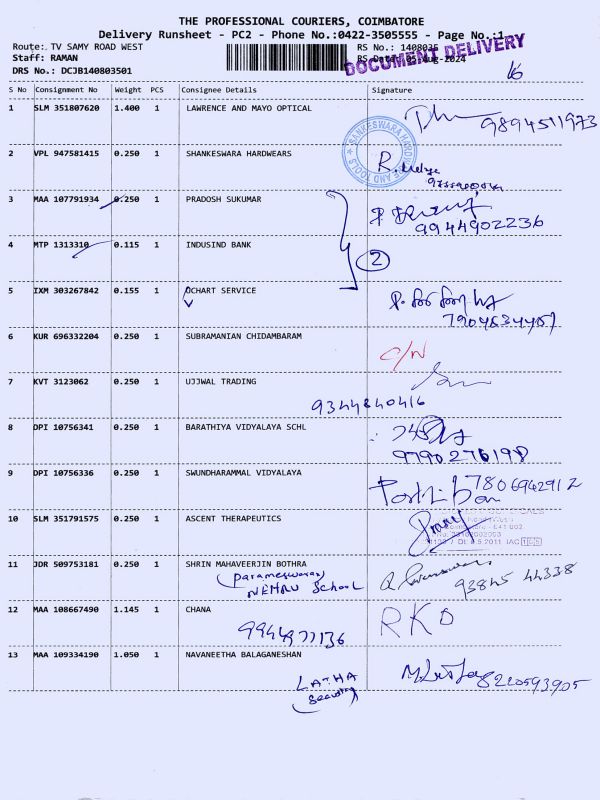 THE PROFESSIONAL COURIERS, COIMBATORE
Delivery Runsheet - PC2 - Phone No.:0422-3505555 - Page No.:1
Route: TV SAMY ROAD WEST
RS No.: 1408035
Staff: RAMAN
RS Date: 05-Aug-2024
DOCUMENT DELIVERY
DRS No.: DCJB140803501
16
S No Consignment No Weight PCS Consignee Details Signature
1 SLM 351807620 1.400 1 LAWRENCE AND MAYO OPTICAL
9894511973
SANKESWARA HARDWARE AND TOOLS
2 VPL 947581415 0.250 1 SHANKESWARA HARDWEARS
3 MAA 107791934 0.250 1 PRADOSH SUKUMAR
9944902236
4 MTP 1313310 0.115 1 INDUSIND BANK
2
5 IXM 303267842 0.155 1 OCHART SERVICE
6 KUR 696332204 0.250 1 SUBRAMANIAN CHIDAMBARAM
C/N
7 KVT 3123062 0.250 1 UJJWAL TRADING
9344840416
8 DPI 10756341 0.250 1 BARATHIYA VIDYALAYA SCHL
9790276198
9 DPI 10756336 0.250 1 SWUNDHARAMMAL VIDYALAYA
7806942912
10 SLM 351791575 0.250 1 ASCENT THERAPEUTICS
11 JDR 509753181 0.250 1 SHRIN MAHAVEERJIN BOTHRA
(Parameswaran)
NEHRU School
93845 44338
12 MAA 108667490 1.145 1 CHANA
RKD
13 MAA 109334190 1.050 1 NAVANEETHA BALAGANESHAN
8220593905
LATHA
(Security)